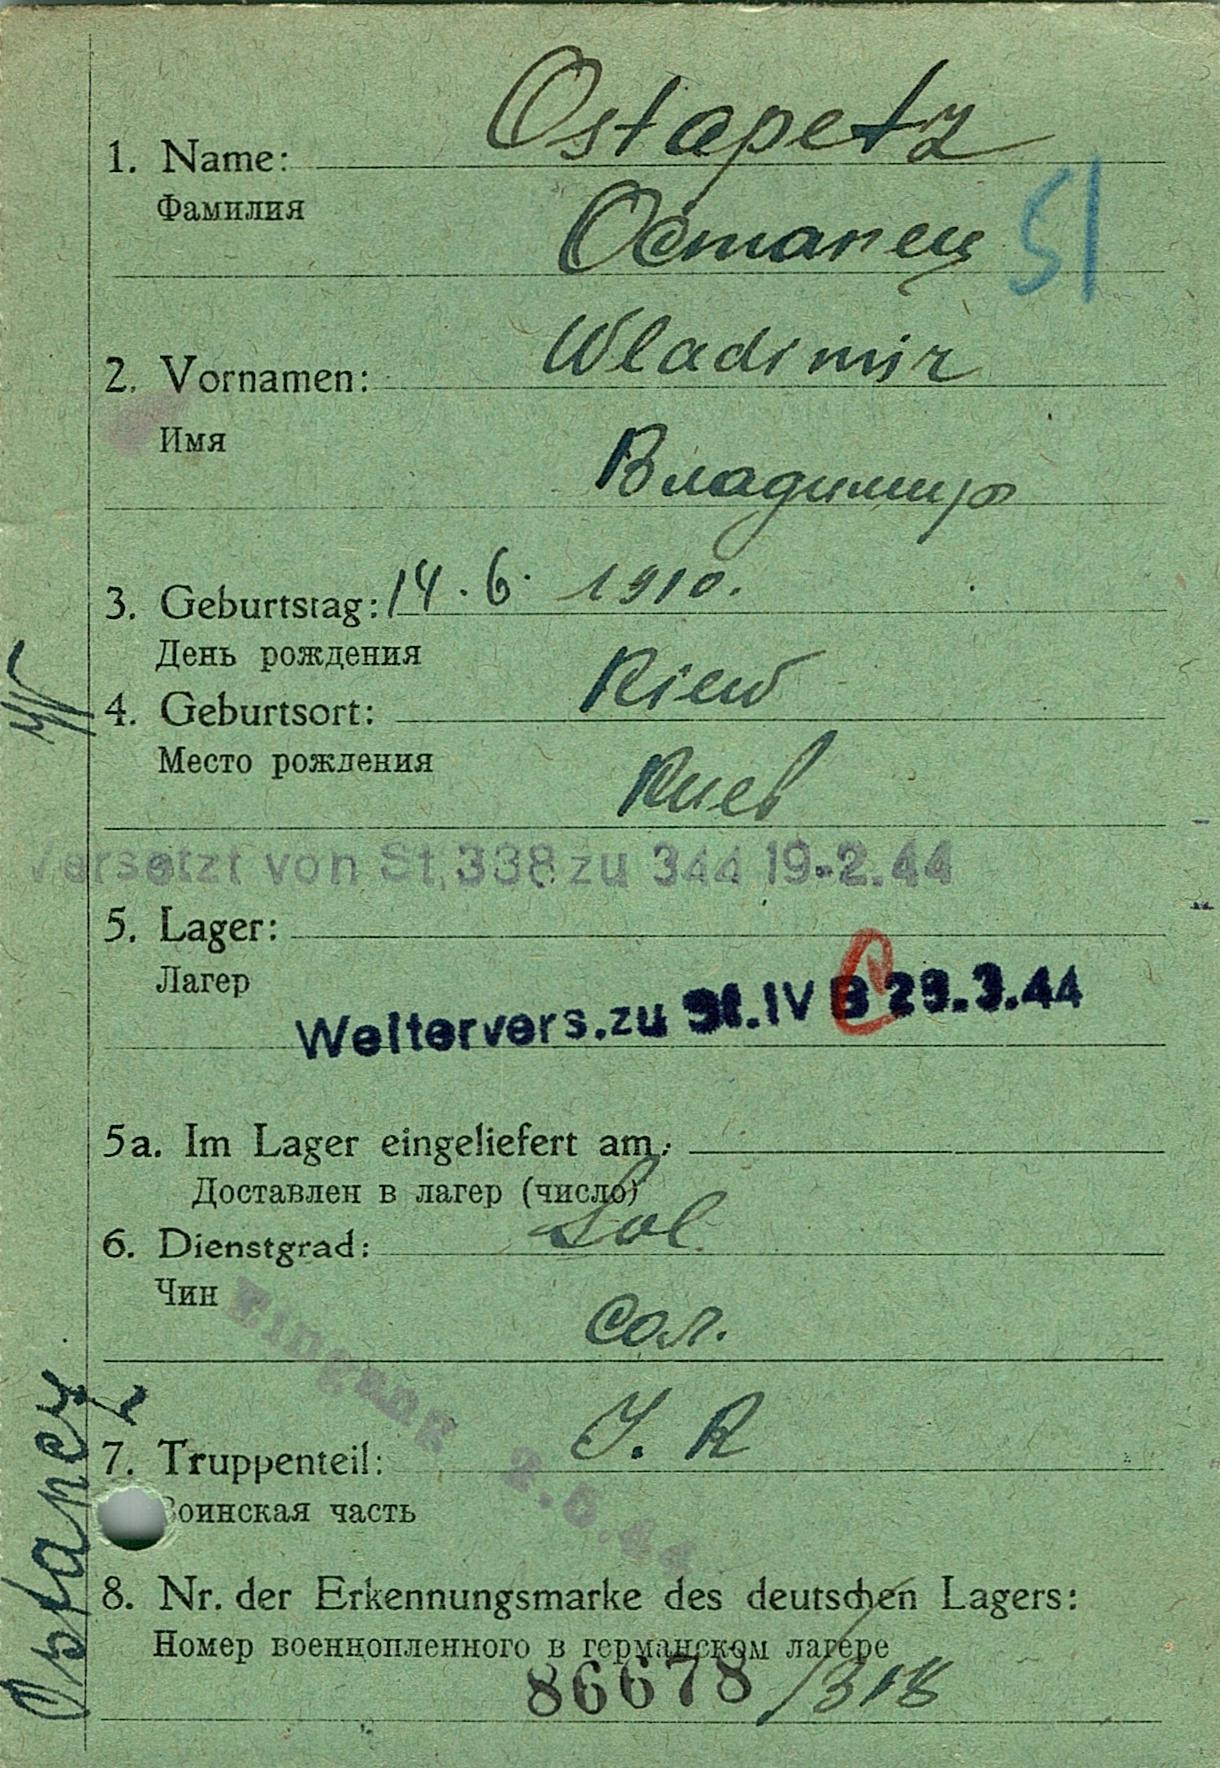 Ostapetz
1. Name:
Фамилия
Остапец
51
Wladimir
2. Vornamen:
Имя
Владимир
3. Geburtstag: 14.6. 1910.
День рождения
Kiew
4. Geburtsort:
Место рождения
Киев
Versetzt von St. 338 zu 344 19.2.44
5. Lager:
Лагер
Weitervers. zu St. IV B 29.3.44
5a. Im Lager eingeliefert am:
Доставлен в лагер (число)
Sol.
6. Dienstgrad:
Чин
сол.
Eingang 2.5.44
J. R
7. Truppenteil:
Воинская часть
8. Nr. der Erkennungsmarke des deutschen Lagers:
Номер военнопленного в германском лагере
86678 /318